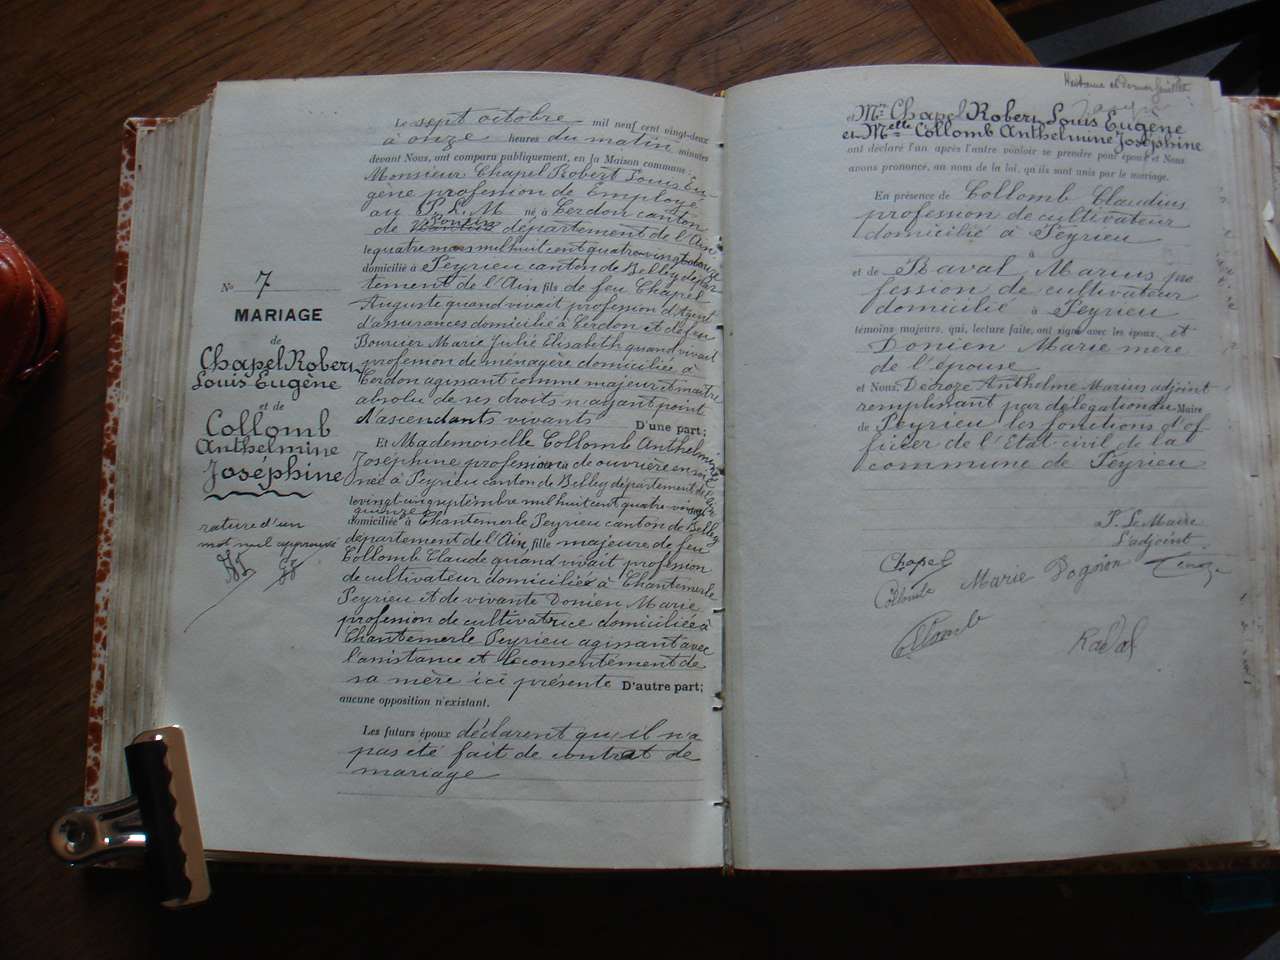 Nº 7
MARIAGE
de
Chapel Robert
Louis Eugène
et de
Collomb
Anthelmine
Joséphine
rature d'un
mot nul approuvé
Le sept octobre mil neuf cent vingt-deux
à onze heures du matin minutes
devant Nous, ont comparu publiquement, en la Maison commune :
Monsieur Chapel Robert Louis Eu-
gène profession de Employé
au P. L. M né à Cerdon canton
de Poncin département de l'Ain
le quatre mars mil huit cent quatre vingt
domicilié à Peyrieu canton de Belley dépar
tement de l'Ain fils de feu Chapel
Auguste quand vivait profession d'Agent
d'assurances domicilié à Cerdon et de feu
Bourcier Marie Julie Elisabeth quand vivait
profession de ménagère domiciliée à
Cerdon agissant comme majeur et maître
absolu de ses droits n'ayant point
d'ascendants vivants D'une part;
Et Mademoiselle Collomb Anthelmine
Joséphine profession de ouvrière en soie
née à Peyrieu canton de Belley département de l'Ain
le vingt-un septembre mil huit cent quatre vingt
quinze
domiciliée à Chantemerle Peyrieu canton de Belley
département de l'Ain, fille majeure de feu
Collomb Claude quand vivait profession
de cultivateur domicilié à Chantemerle
Peyrieu et de vivante Donien Marie
profession de cultivatrice domiciliée à
Chantemerle Peyrieu agissant avec
l'assistance et le consentement de
sa mère ici présente D'autre part;
aucune opposition n'existant.
Les futurs époux déclarent qu'il n'a
pas été fait de contrat de
mariage
et Mr Chapel Robert Louis Eugène
et Melle Collomb Anthelmine Joséphine
ont déclaré l'un après l'autre vouloir se prendre pour époux et Nous
avons prononcé, au nom de la loi, qu'ils sont unis par le mariage.
En présence de Collomb Claudius
profession de cultivateur
domicilié à Peyrieu
à
et de Raval Marius pro
fession de cultivateur
domicilié à Peyrieu
témoins majeurs, qui, lecture faite, ont signé avec les époux, et
Donien Marie mère
de l'épouse
et Nous, Decroze Anthelme Marius adjoint
remplissant par délégation du Maire
de Peyrieu les fonctions d'of
ficier de l'Etat-civil de la
commune de Peyrieu
P. Le Maire
L'adjoint
Chapel
Collomb Marie
Collomb
Raval